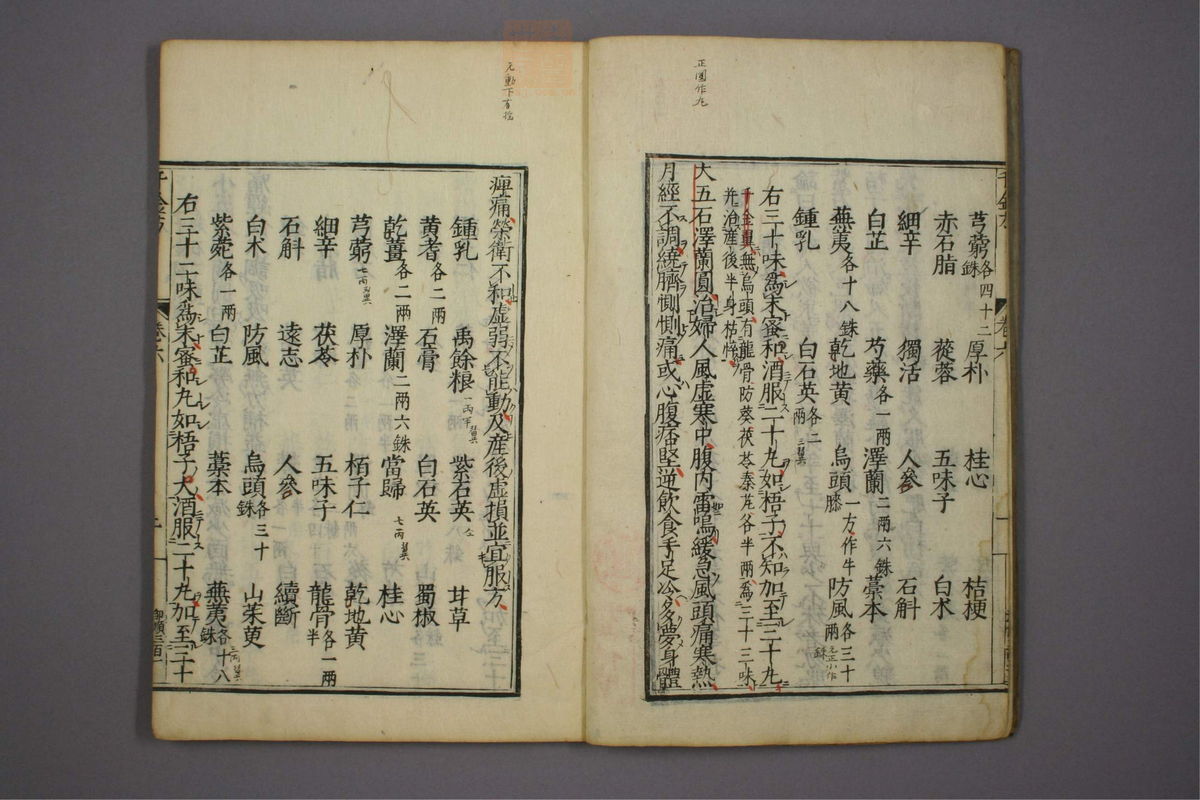 正圓作丸
芎藭各四十二銖 厚朴 桂心 桔梗
赤石脂 蓯蓉 五味子 白朮
細辛 獨活 人參 石斛
白芷 芍藥各一兩 澤蘭二兩六銖 藁本
蕪荑各十八銖 乾地黃 烏頭一方作牛膝 防風各三十銖
鍾乳 白石英各二兩
右三十味爲末蜜和酒服二十丸如梧子不知加至三十丸
千金翼無烏頭有龍骨防葵茯苓秦芃各半兩爲三十三味
并治產後半身枯悴
大五石澤蘭圓治婦人風虛寒中腹內雷鳴緩急風頭痛寒熱
月經不調繞臍惻惻痛或心腹痞堅逆飲食手足冷多夢身體
元動下有搖
痺痛榮衛不和虛弱不能動及產後虛損並宜服方
鍾乳 禹餘粮 紫石英 甘草
黃耆各二兩 石膏 白石英 蜀椒
乾薑各二兩 澤蘭二兩六銖 當歸 桂心
芎藭 厚朴 栢子仁 乾地黃
細辛 茯苓 五味子 龍骨各一兩半
石斛 遠志 人參 續斷
白朮 防風 烏頭各三十銖 山茱萸
紫菀各一兩 白芷 藁本 蕪荑各十八銖
右三十二味爲末蜜和丸如梧子大酒服二十丸加至三十
卷六